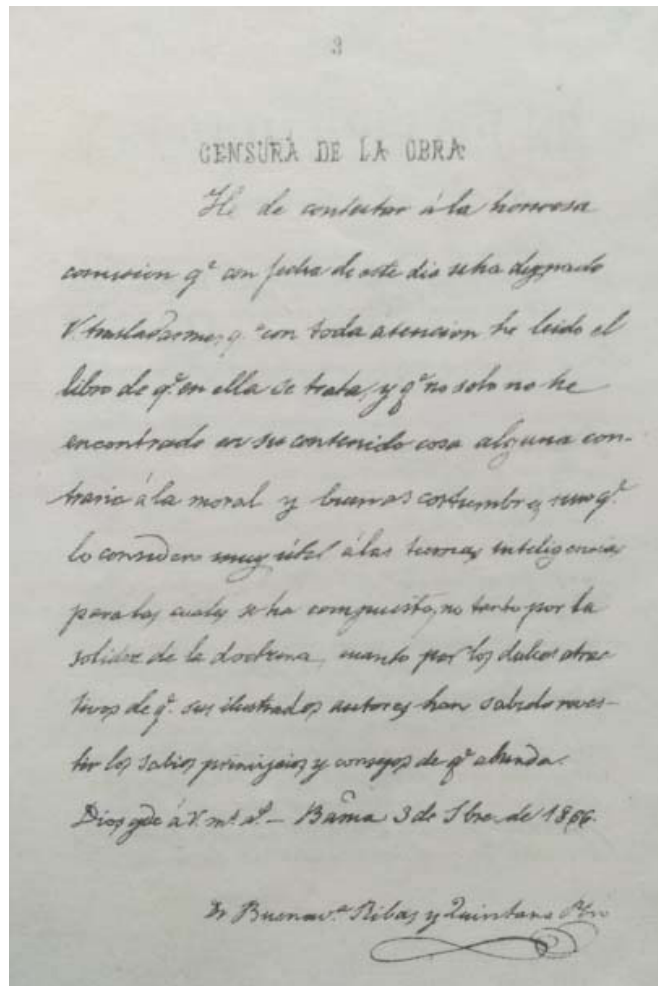 3
CENSURA DE LA OBRA
He de contestar á la honrosa
comision q.e con fecha de este dia se ha dignado
V. trasladarme, q.e con toda atencion he leido el
libro de q.e en ella se trata, y q.e no solo no he
encontrado en su contenido cosa alguna con-
traria á la moral y buenas costumbres, sino q.e
lo considero muy útil á las tiernas inteligencias
para las cuales se ha compuesto, no tanto por la
solidez de la doctrina, cuanto por los dulces atrac
tivos de q.e sus ilustrados autores han sabido reves-
tir los sabios principios y consejos de q.e abunda.
Dios gde á V. m.s a.s — Barna 3 de Sbre. de 1866.
Dr Buenav.a Ribas y Quintana Pbro